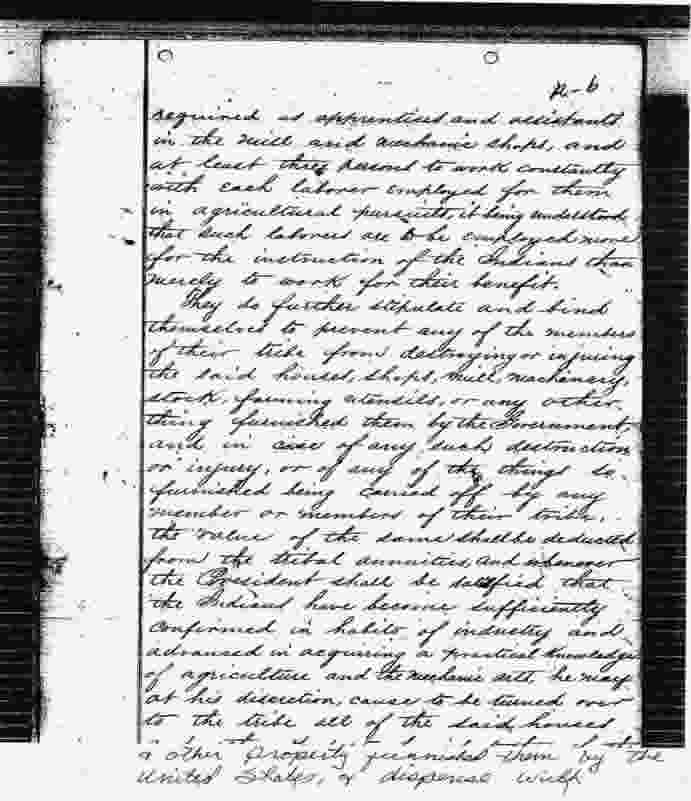 R-6
required as apprentices and assistants
in the mill and mechanic shops, and
at least three persons to work constantly
with each laborer employed for them
in agricultural pursuits, it being understood
that such laborers are to be employed more
for the instruction of the Indians than
merely to work for their benefit.
They do further stipulate and bind
themselves to prevent any of the members
of their tribe from destroying or injuring
the said houses, shops, mill, machinery,
stock, farming utensils, or any other
thing furnished them by the Government,
and in case of any such destruction
or injury, or of any of the things so
furnished being carried off by any
member or members of their tribe,
the value of the same shall be deducted
from the tribal annuities, and whenever
the President shall be satisfied that
the Indians have become sufficiently
confirmed in habits of industry and
advanced in acquiring a practical knowledge
of agriculture and the mechanic arts, he may
at his discretion, cause to be turned over
to the tribe all of the said houses
& other property furnished them by the
United States, & dispense with